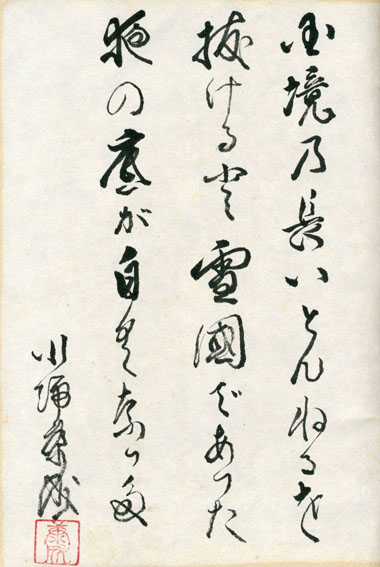 国境の長いとんねるを
抜けると雪國であつた
夜の底が白くなつた
川端康成
康成